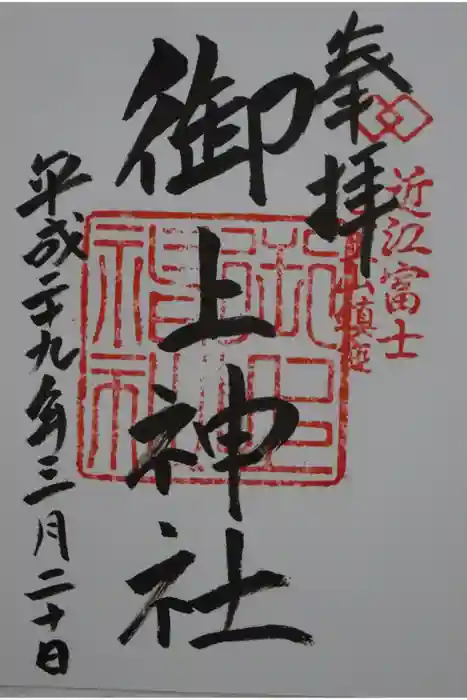 奉拝
近江富士
山鎮座
御上神社
平成二十九年三月二十日